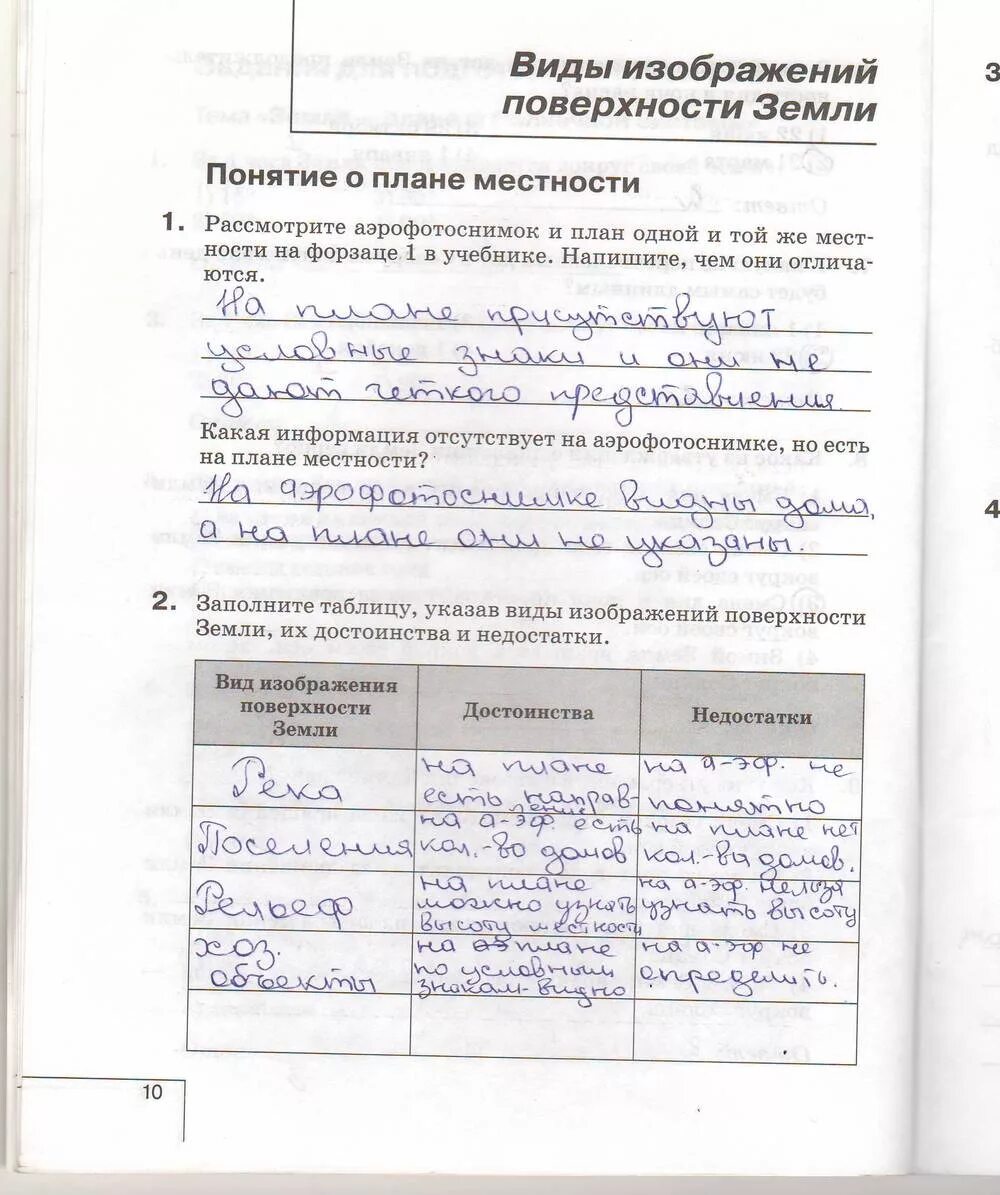 Виды изображений
поверхности Земли
Понятие о плане местности
1. Рассмотрите аэрофотоснимок и план одной и той же мест-
ности на форзаце 1 в учебнике. Напишите, чем они отлича-
ются.
На плане присутствуют
условные знаки и они не
дают четкого представления.
Какая информация отсутствует на аэрофотоснимке, но есть
на плане местности?
На аэрофотоснимке видны дома,
а на плане они не указаны.
2. Заполните таблицу, указав виды изображений поверхности
Земли, их достоинства и недостатки.
Вид изображения
поверхности
Земли
Достоинства
Недостатки
Река
на плане
есть направ-
ление
на а-эф. не
понятно
Поселения
на а-эф. есть
кол.-во домов
на плане нет
кол.-ва домов.
Рельеф
на плане
можно узнать
высоту местности
на а-эф. нельзя
узнать высоту
хоз.
объекты
на плане
по условным
знакам-видно
на а-эф не
определить.
10
3
4